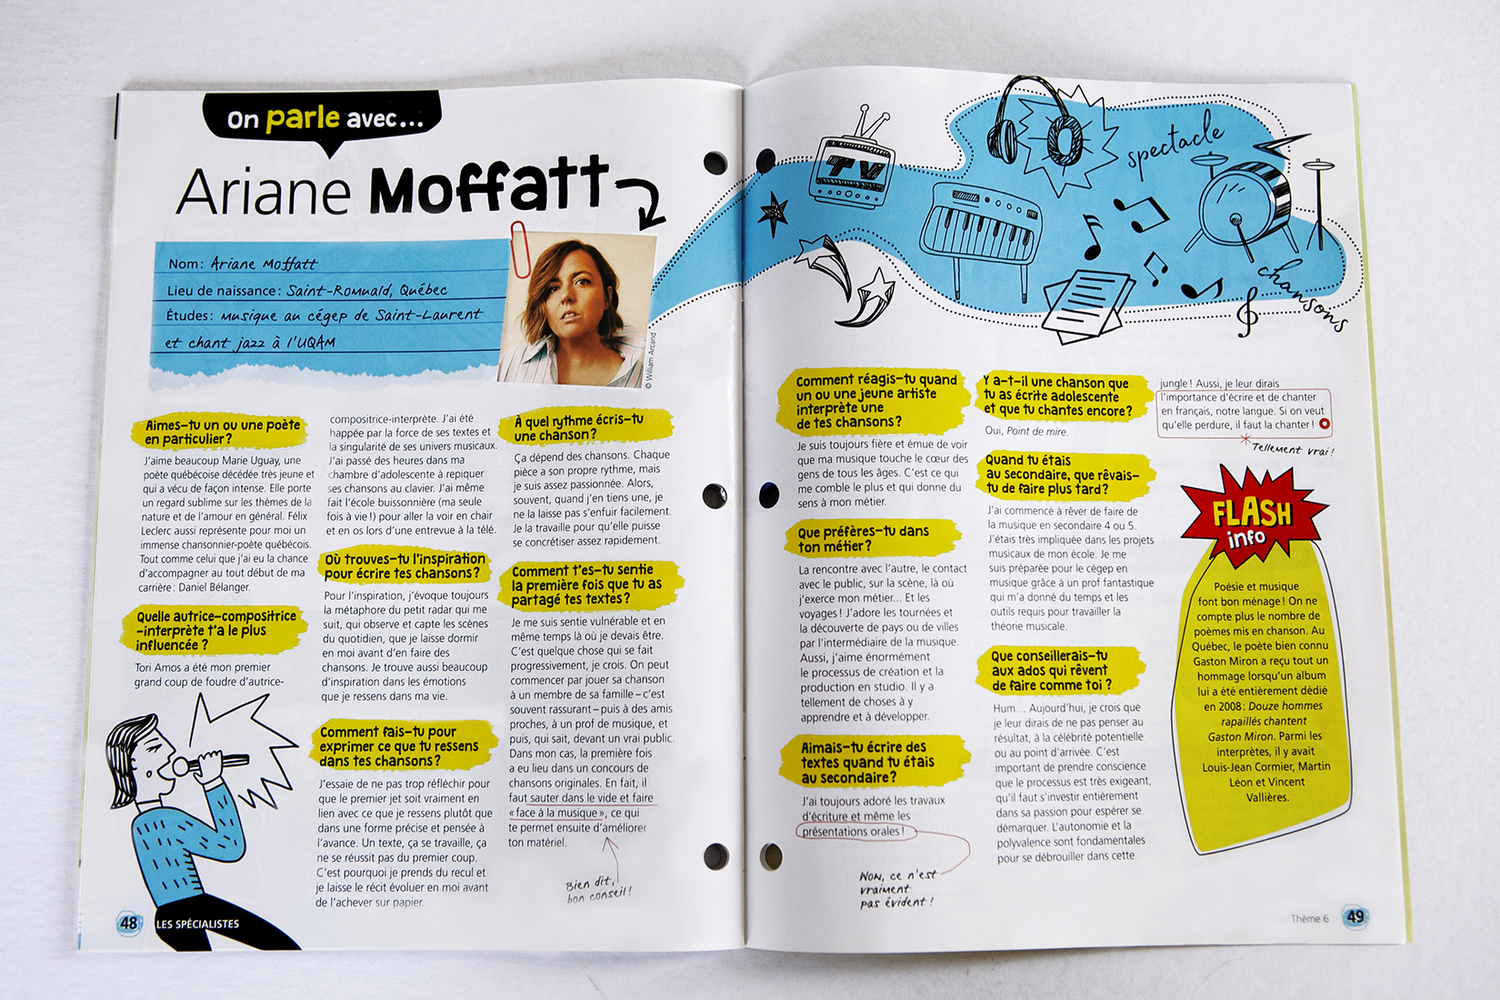 On parle avec...
Ariane Moffatt
Nom : Ariane Moffatt
Lieu de naissance : Saint-Romuald, Québec
Études : musique au cégep de Saint-Laurent
et chant jazz à l'UQAM
© William Arcand
Aimes-tu un ou une poète
en particulier ?
J'aime beaucoup Marie Uguay, une
poète québécoise décédée très jeune et
qui a vécu de façon intense. Elle porte
un regard sublime sur les thèmes de la
nature et de l'amour en général. Félix
Leclerc aussi représente pour moi un
immense chansonnier-poète québécois.
Tout comme celui que j'ai eu la chance
d'accompagner au tout début de ma
carrière : Daniel Bélanger.
Quelle autrice-compositrice
-interprète t'a le plus
influencée ?
Tori Amos a été mon premier
grand coup de foudre d'autrice-
compositrice-interprète. J'ai été
happée par la force de ses textes et
la singularité de ses univers musicaux.
J'ai passé des heures dans ma
chambre d'adolescente à repiquer
ses chansons au clavier. J'ai même
fait l'école buissonnière (ma seule
fois à vie !) pour aller la voir en chair
et en os lors d'une entrevue à la télé.
Où trouves-tu l'inspiration
pour écrire tes chansons ?
Pour l'inspiration, j'évoque toujours
la métaphore du petit radar qui me
suit, qui observe et capte les scènes
du quotidien, que je laisse dormir
en moi avant d'en faire des
chansons. Je trouve aussi beaucoup
d'inspiration dans les émotions
que je ressens dans ma vie.
Comment fais-tu pour
exprimer ce que tu ressens
dans tes chansons ?
J'essaie de ne pas trop réfléchir pour
que le premier jet soit vraiment en
lien avec ce que je ressens plutôt que
dans une forme précise et pensée à
l'avance. Un texte, ça se travaille, ça
ne se réussit pas du premier coup.
C'est pourquoi je prends du recul et
je laisse le récit évoluer en moi avant
de l'achever sur papier.
À quel rythme écris-tu
une chanson ?
Ça dépend des chansons. Chaque
pièce a son propre rythme, mais
je suis assez passionnée. Alors,
souvent, quand j'en tiens une, je
ne la laisse pas s'enfuir facilement.
Je la travaille pour qu'elle puisse
se concrétiser assez rapidement.
Comment t'es-tu sentie
la première fois que tu as
partagé tes textes ?
Je me suis sentie vulnérable et en
même temps là où je devais être.
C'est quelque chose qui se fait
progressivement, je crois. On peut
commencer par jouer sa chanson
à un membre de sa famille – c'est
souvent rassurant – puis à des amis
proches, à un prof de musique, et
puis, qui sait, devant un vrai public.
Dans mon cas, la première fois
a eu lieu dans un concours de
chansons originales. En fait, il
faut sauter dans le vide et faire
« face à la musique », ce qui
te permet ensuite d'améliorer
ton matériel.
Bien dit,
bon conseil !
48 LES SPÉCIALISTES
TV
spectacle
chansons
Comment réagis-tu quand
un ou une jeune artiste
interprète une
de tes chansons ?
Je suis toujours fière et émue de voir
que ma musique touche le cœur des
gens de tous les âges. C'est ce qui
me comble le plus et qui donne du
sens à mon métier.
Que préfères-tu dans
ton métier ?
La rencontre avec l'autre, le contact
avec le public, sur la scène, là où
j'exerce mon métier... Et les
voyages ! J'adore les tournées et
la découverte de pays ou de villes
par l'intermédiaire de la musique.
Aussi, j'aime énormément
le processus de création et la
production en studio. Il y a
tellement de choses à y
apprendre et à développer.
Aimais-tu écrire des
textes quand tu étais
au secondaire ?
J'ai toujours adoré les travaux
d'écriture et même les
présentations orales !
Non, ce n'est
vraiment
pas évident !
Y a-t-il une chanson que
tu as écrite adolescente
et que tu chantes encore ?
Oui, Point de mire.
Quand tu étais
au secondaire, que rêvais-
tu de faire plus tard ?
J'ai commencé à rêver de faire de
la musique en secondaire 4 ou 5.
J'étais très impliquée dans les projets
musicaux de mon école. Je me
suis préparée pour le cégep en
musique grâce à un prof fantastique
qui m'a donné du temps et les
outils requis pour travailler la
théorie musicale.
Que conseillerais-tu
aux ados qui rêvent
de faire comme toi ?
Hum... Aujourd'hui, je crois que
je leur dirais de ne pas penser au
résultat, à la célébrité potentielle
ou au point d'arrivée. C'est
important de prendre conscience
que le processus est très exigeant,
qu'il faut s'investir entièrement
dans sa passion pour espérer se
démarquer. L'autonomie et la
polyvalence sont fondamentales
pour se débrouiller dans cette
jungle ! Aussi, je leur dirais
l'importance d'écrire et de chanter
en français, notre langue. Si on veut
qu'elle perdure, il faut la chanter !
Tellement vrai !
FLASH
info
Poésie et musique
font bon ménage ! On ne
compte plus le nombre de
poèmes mis en chanson. Au
Québec, le poète bien connu
Gaston Miron a reçu tout un
hommage lorsqu'un album
lui a été entièrement dédié
en 2008 : Douze hommes
rapaillés chantent
Gaston Miron. Parmi les
interprètes, il y avait
Louis-Jean Cormier, Martin
Léon et Vincent
Vallières.
Thème 6 49